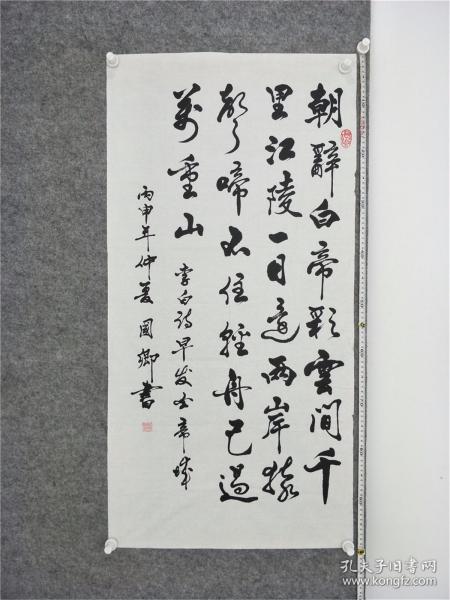 朝辭白帝彩雲間千
里江陵一日還兩岸猿
聲啼不住輕舟已過
萬重山 李白诗早发白帝城
丙申年仲夏國書
孔夫子旧书网
www.kongfz.com